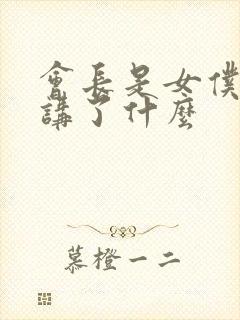 會長是女僕
講了什麼
慕橙一二